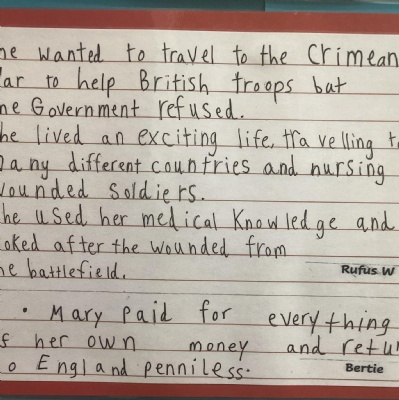 he wanted to travel to the Crimean
ar to help British troops but
he Government refused.
he lived an exciting life, travelling t
any different countries and nursing
wounded soldiers.
he used her medical knowledge and
ooked after the wounded from
he battlefield.
Rufus W
• Mary paid for everything
f her own money and retu
o England penniless.
Bertie